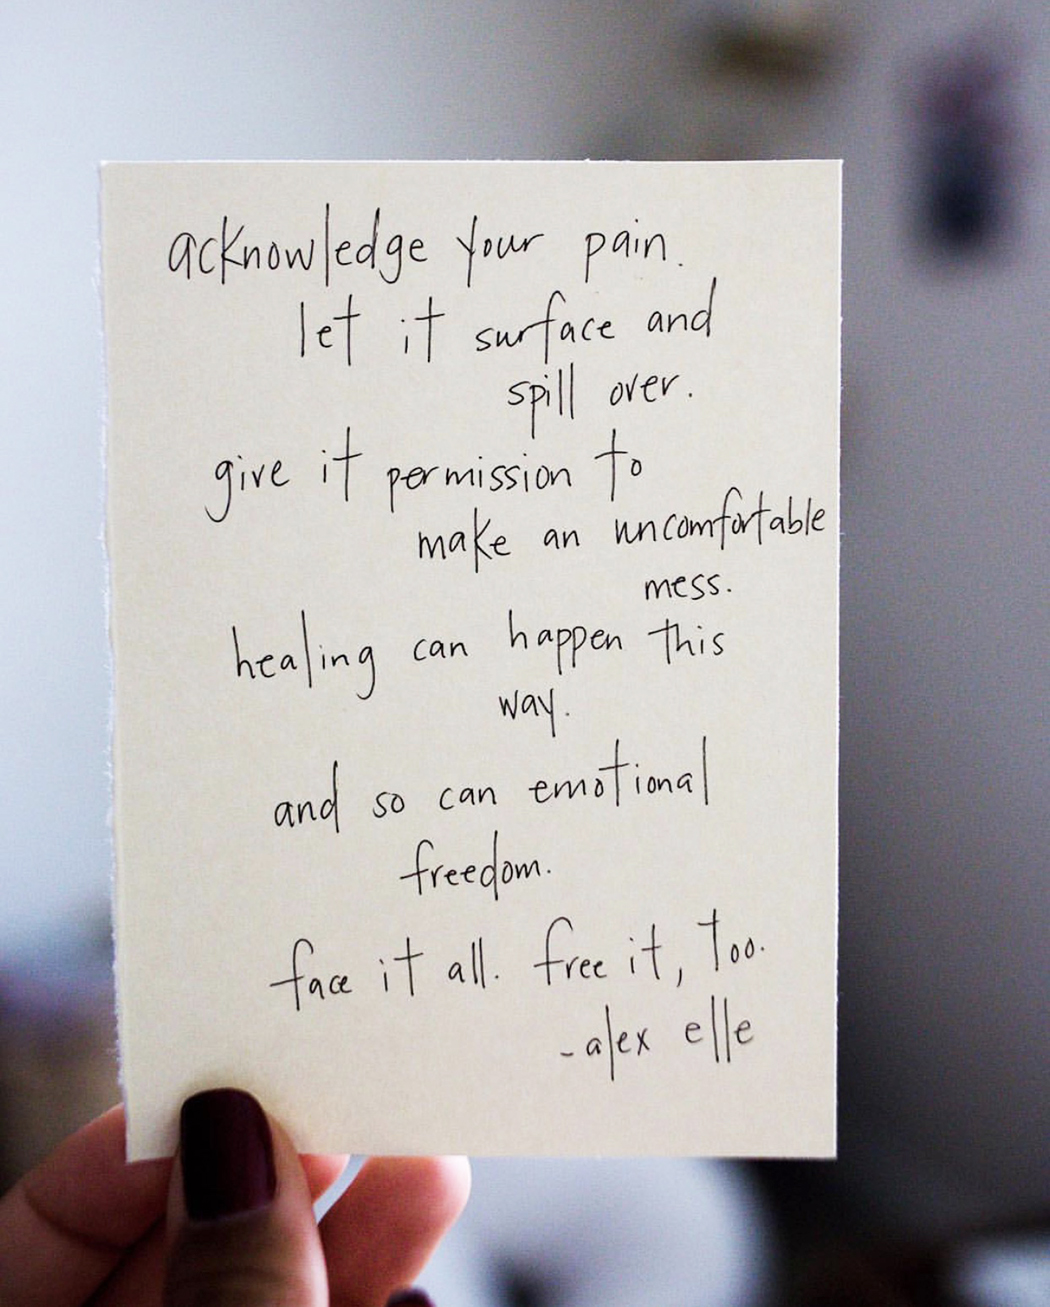 acknowledge your pain.
let it surface and
spill over.
give it permission to
make an uncomfortable
mess.
healing can happen this
way.
and so can emotional
freedom.
face it all. free it, too.
-alex elle